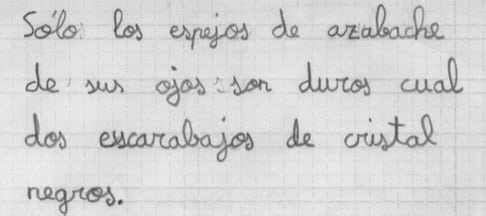 Sólo los espejos de azabache
de sus ojos son duros cual
dos escarabajos de cristal
negros.